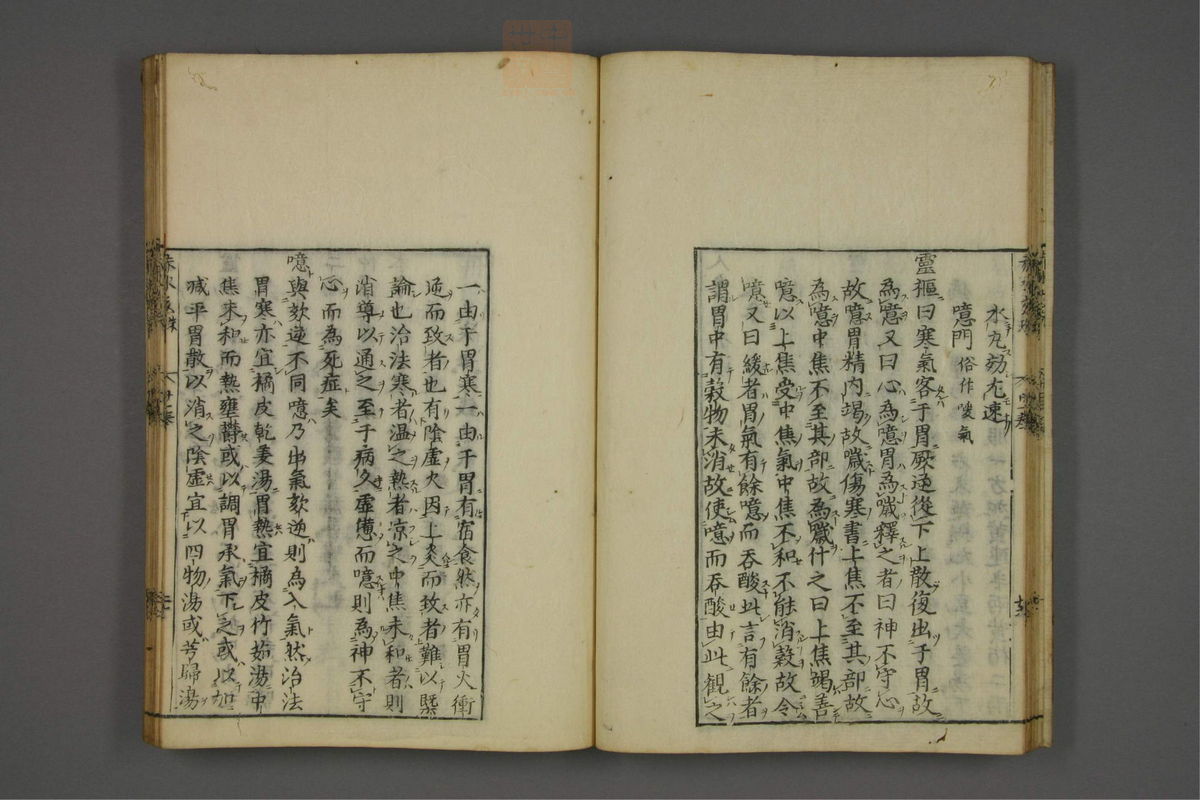 水丸効尤速
噫門 俗作嗳氣
靈樞曰寒氣客于胃厥逆從下上散復出于胃故
為噫又曰心為噫胃為噦釋之者曰神不守心
故噫胃精内竭故噦傷寒書上焦不至其部故
為噫中焦不至其部故為噦什之曰上焦竭善
噫以上焦受中焦氣中焦不和不能消穀故令
噫又曰緩者胃氣有餘噫而吞酸此言有餘者
謂胃中有穀物未消故使噫而吞酸由此観之
一由于胃寒一由于胃有宿食然亦有胃火衝
逆而致者也有陰虛火因上炎而致者難以槩
論也治法寒者温之熱者凉之中焦未和者則
消導以通之至于病久虛憊而噫則為神不守
心而為死症矣
噫與欬逆不同噫乃出氣欬逆則為入氣然治法
胃寒亦宜橘皮乾姜湯胃熱宜橘皮竹茹湯中
焦未和而熱壅欝或以調胃承氣下之或以加
减平胃散以消之陰虛宜以四物湯或芎歸湯